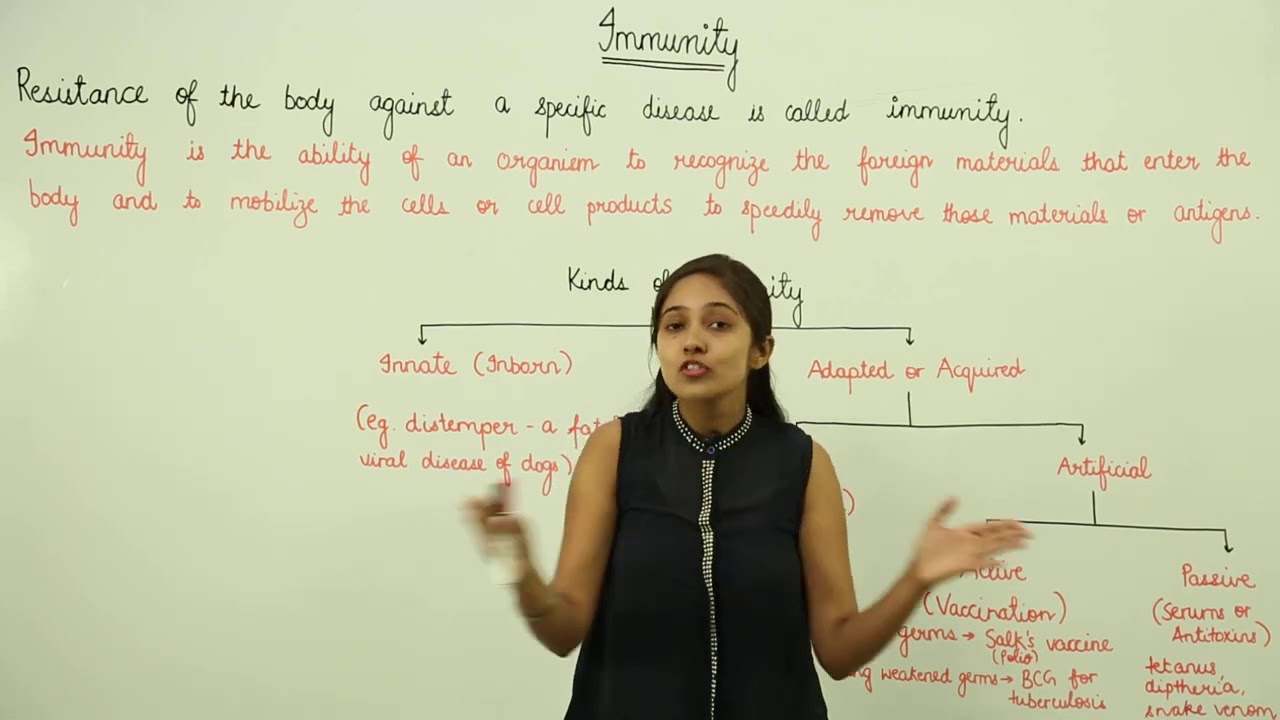 Immunity
Resistance of the body against a specific disease is called immunity.
Immunity is the ability of an organism to recognize the foreign materials that enter the
body and to mobilize the cells or cell products to speedily remove those materials or antigens.
Kinds
Innate (Inborn)
Adapted or Acquired
(eg. distemper - a
viral disease of dogs)
Artificial
Active
Passive
(Vaccination)
(Serums or
Antitoxins)
germs → Salk's vaccine
(Polio)
weakened germs → BCG for
tuberculosis
tetanus,
diptheria,
snake venom